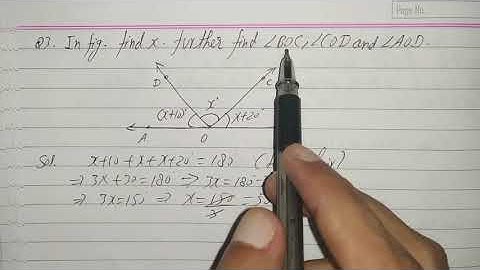 Page No.
Q3. In fig. find x. further find ∠BOC, ∠COD and ∠AOD.
D C
(x+10)° x° x+20°
A O
Sol. x+10+x+x+20° = 180
⇒ 3x+30=180 ⇒ 3x=180°
⇒ 3x=150 ⇒ x=150/3 =